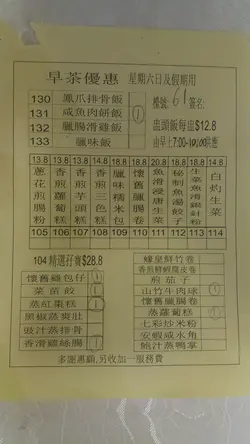 早茶優惠 星期六日及假期用
130 鳳爪排骨飯
131 咸魚肉餅飯 1
132 臘腸滑雞飯
133 臘味飯
檯號: 61 簽名:
盅頭飯每盅$12.8
由早上7:00-10:00供應
13.8 13.8 13.8 14.8 18.8 18.8 20.8 18.8 18.8 18.8
蔥花煎腸粉
香煎蘿蔔糕
香煎芋頭糕
香煎三色腸
臘味糯米飯
懷舊糯米包
魚湯浸唐生菜
秘製魚湯餃子
生菜魚滑湯粉
白灼生菜
105 106 107 108 109 110 111 112 113 114
104 精選孖寶$28.8
懷舊雞包仔 1
菜苗餃 1
蒸紅棗糕 1
黑椒蒸爽肚
豉汁蒸排骨
香滑雞絲腸 1
蠔皇鮮竹卷
香煎鮮蝦腐皮卷
煎茄子
山竹牛肉球 1
懷舊臘腸卷
蒸蘿蔔糕 1
七彩炒米粉
安蝦咸水角
鮑汁蒸鴨掌
多謝惠顧,另收加一服務費